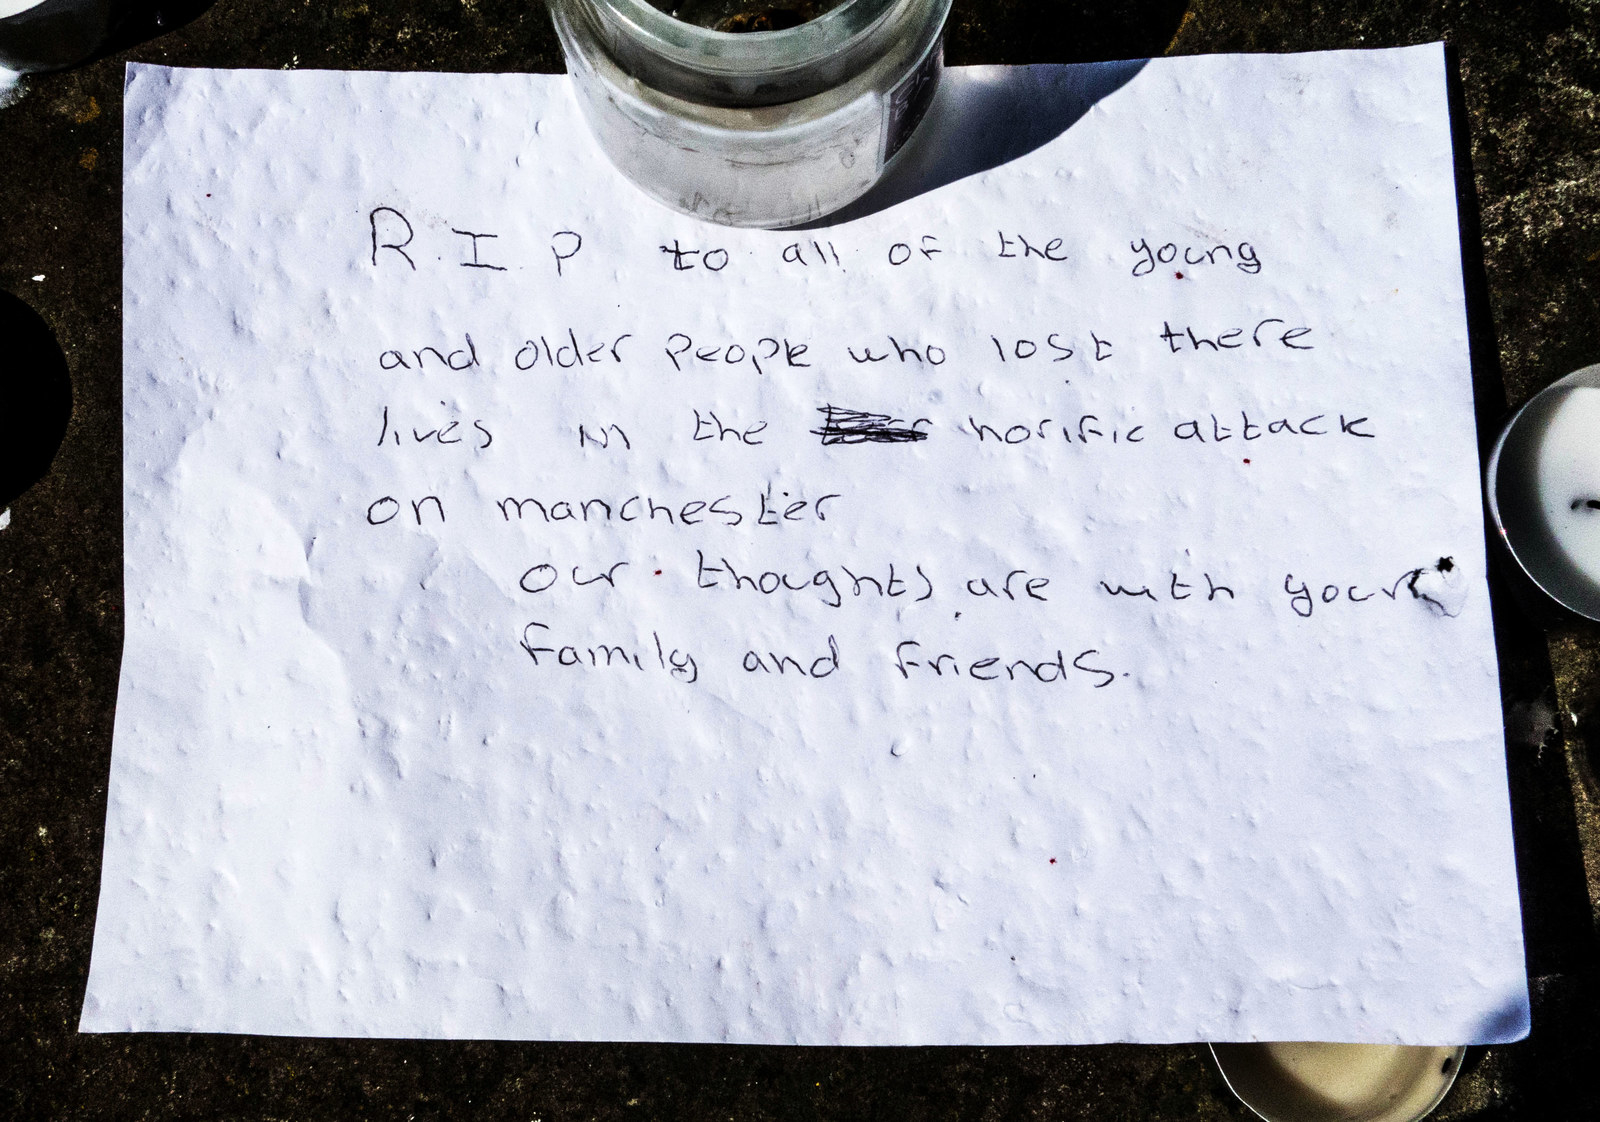 R.I.P to all of the young
and older people who lost there
lives in the horific attack
on manchester
our thoughts are with your
family and friends.